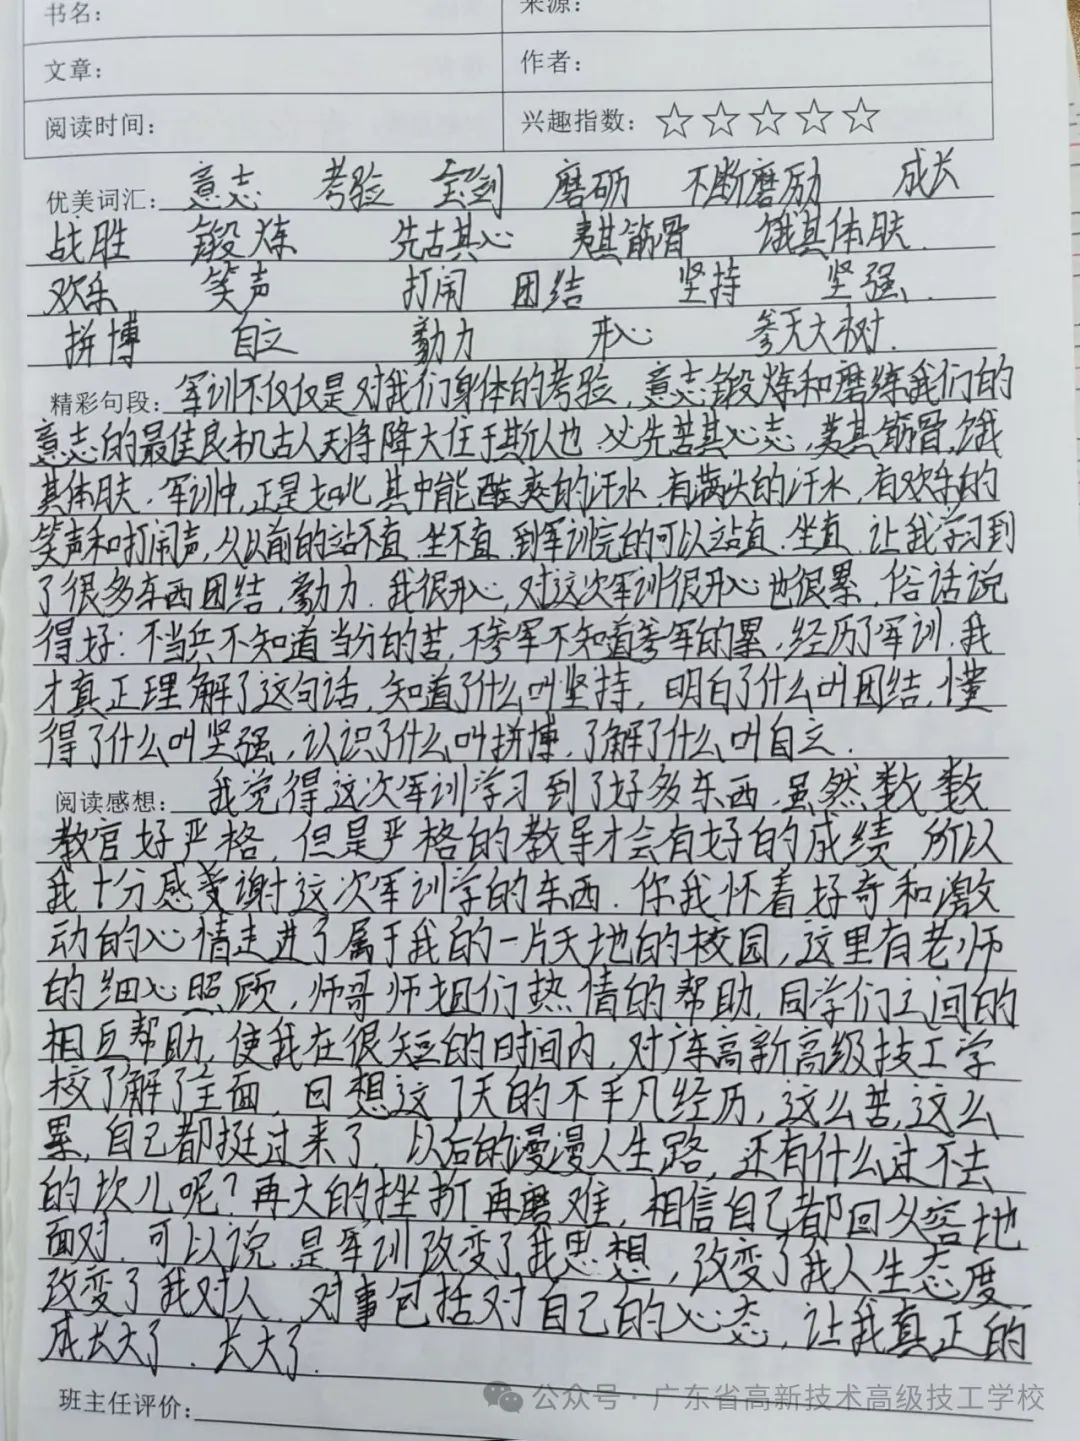 书名：
来源：
文章：
作者：
阅读时间：
兴趣指数：☆☆☆☆☆
优美词汇：意志 考验 宝剑 磨砺 不断磨励 成长
战胜 锻炼 先古其心 夷其筋骨 饿其体肤.
欢乐 笑声 打闹 团结 坚持 坚强.
拼博 自立 勤力 开心 参天大树.
精彩句段：军训不仅仅是对我们身体的考验，意志锻炼和磨练我们的
意志的最佳良机古人天将降大任于斯人也 必先苦其心志，夷其筋骨，饿
其体肤. 军训中,正是如此,其中能酣爽的汗水,有满头的汗水,有欢乐的
笑声和打闹声,从以前的站不直.坐不直.到军训完的可以站直.坐直.让我学习到
了很多东西团结,勤力.我很开心,对这次军训很开心也很累,俗话说
得好：不当兵不知道当分的苦,不参军不知道参军的累,经历了军训.我
才真正理解了这句话,知道了什么叫坚持,明白了什么叫团结,懂
得了什么叫坚强,认识了什么叫拼博,了解了什么叫自立.
阅读感想：我觉得这次军训学习到了好多东西,虽然
教官好严格,但是严格的教导才会有好的成绩,所以
我十分感谢这次军训学的东西.你我怀着好奇和激
动的心情走进了属于我的一片天地的校园,这里有老师
的细心照顾,师哥师姐们热情的帮助,同学们之间的
相互帮助,使我在很短的时间内,对广东高新高级技工学
校了解了全面,回想这7天的不平凡经历,这么苦,这么
累,自己都挺过来了,以后的漫漫人生路,还有什么过不去
的坎儿呢?再大的挫折再磨难,相信自己都回从容地
面对.可以说,是军训改变了我思想,改变了我人生态度
改变了我对人、对事包括对自己的心态,让我真正的
成长大了.长大了.
班主任评价：
公众号·广东省高新技术高级技工学校